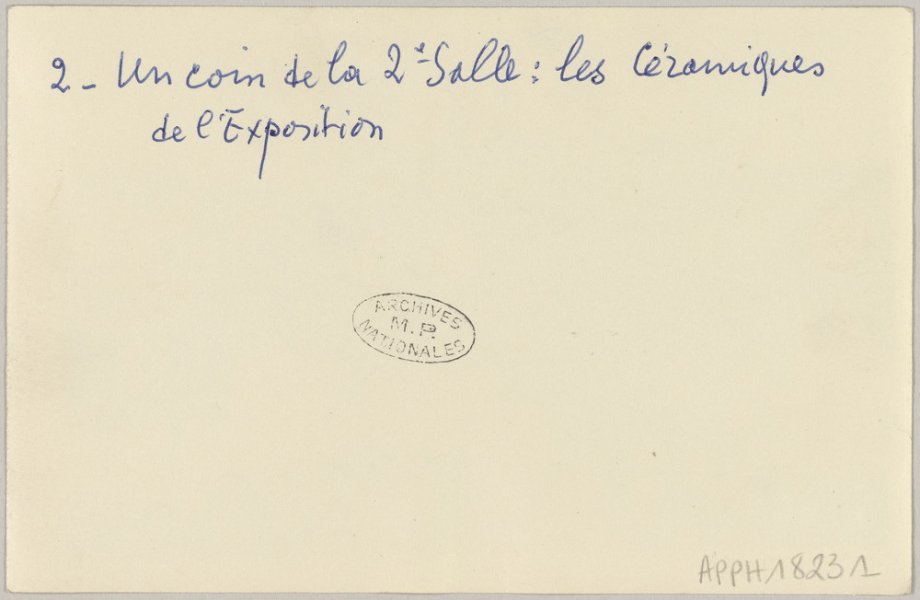 2 - Un coin de la 2e Salle : les Céramiques
de l'Exposition
ARCHIVES
M. P.
NATIONALES
APPH18231